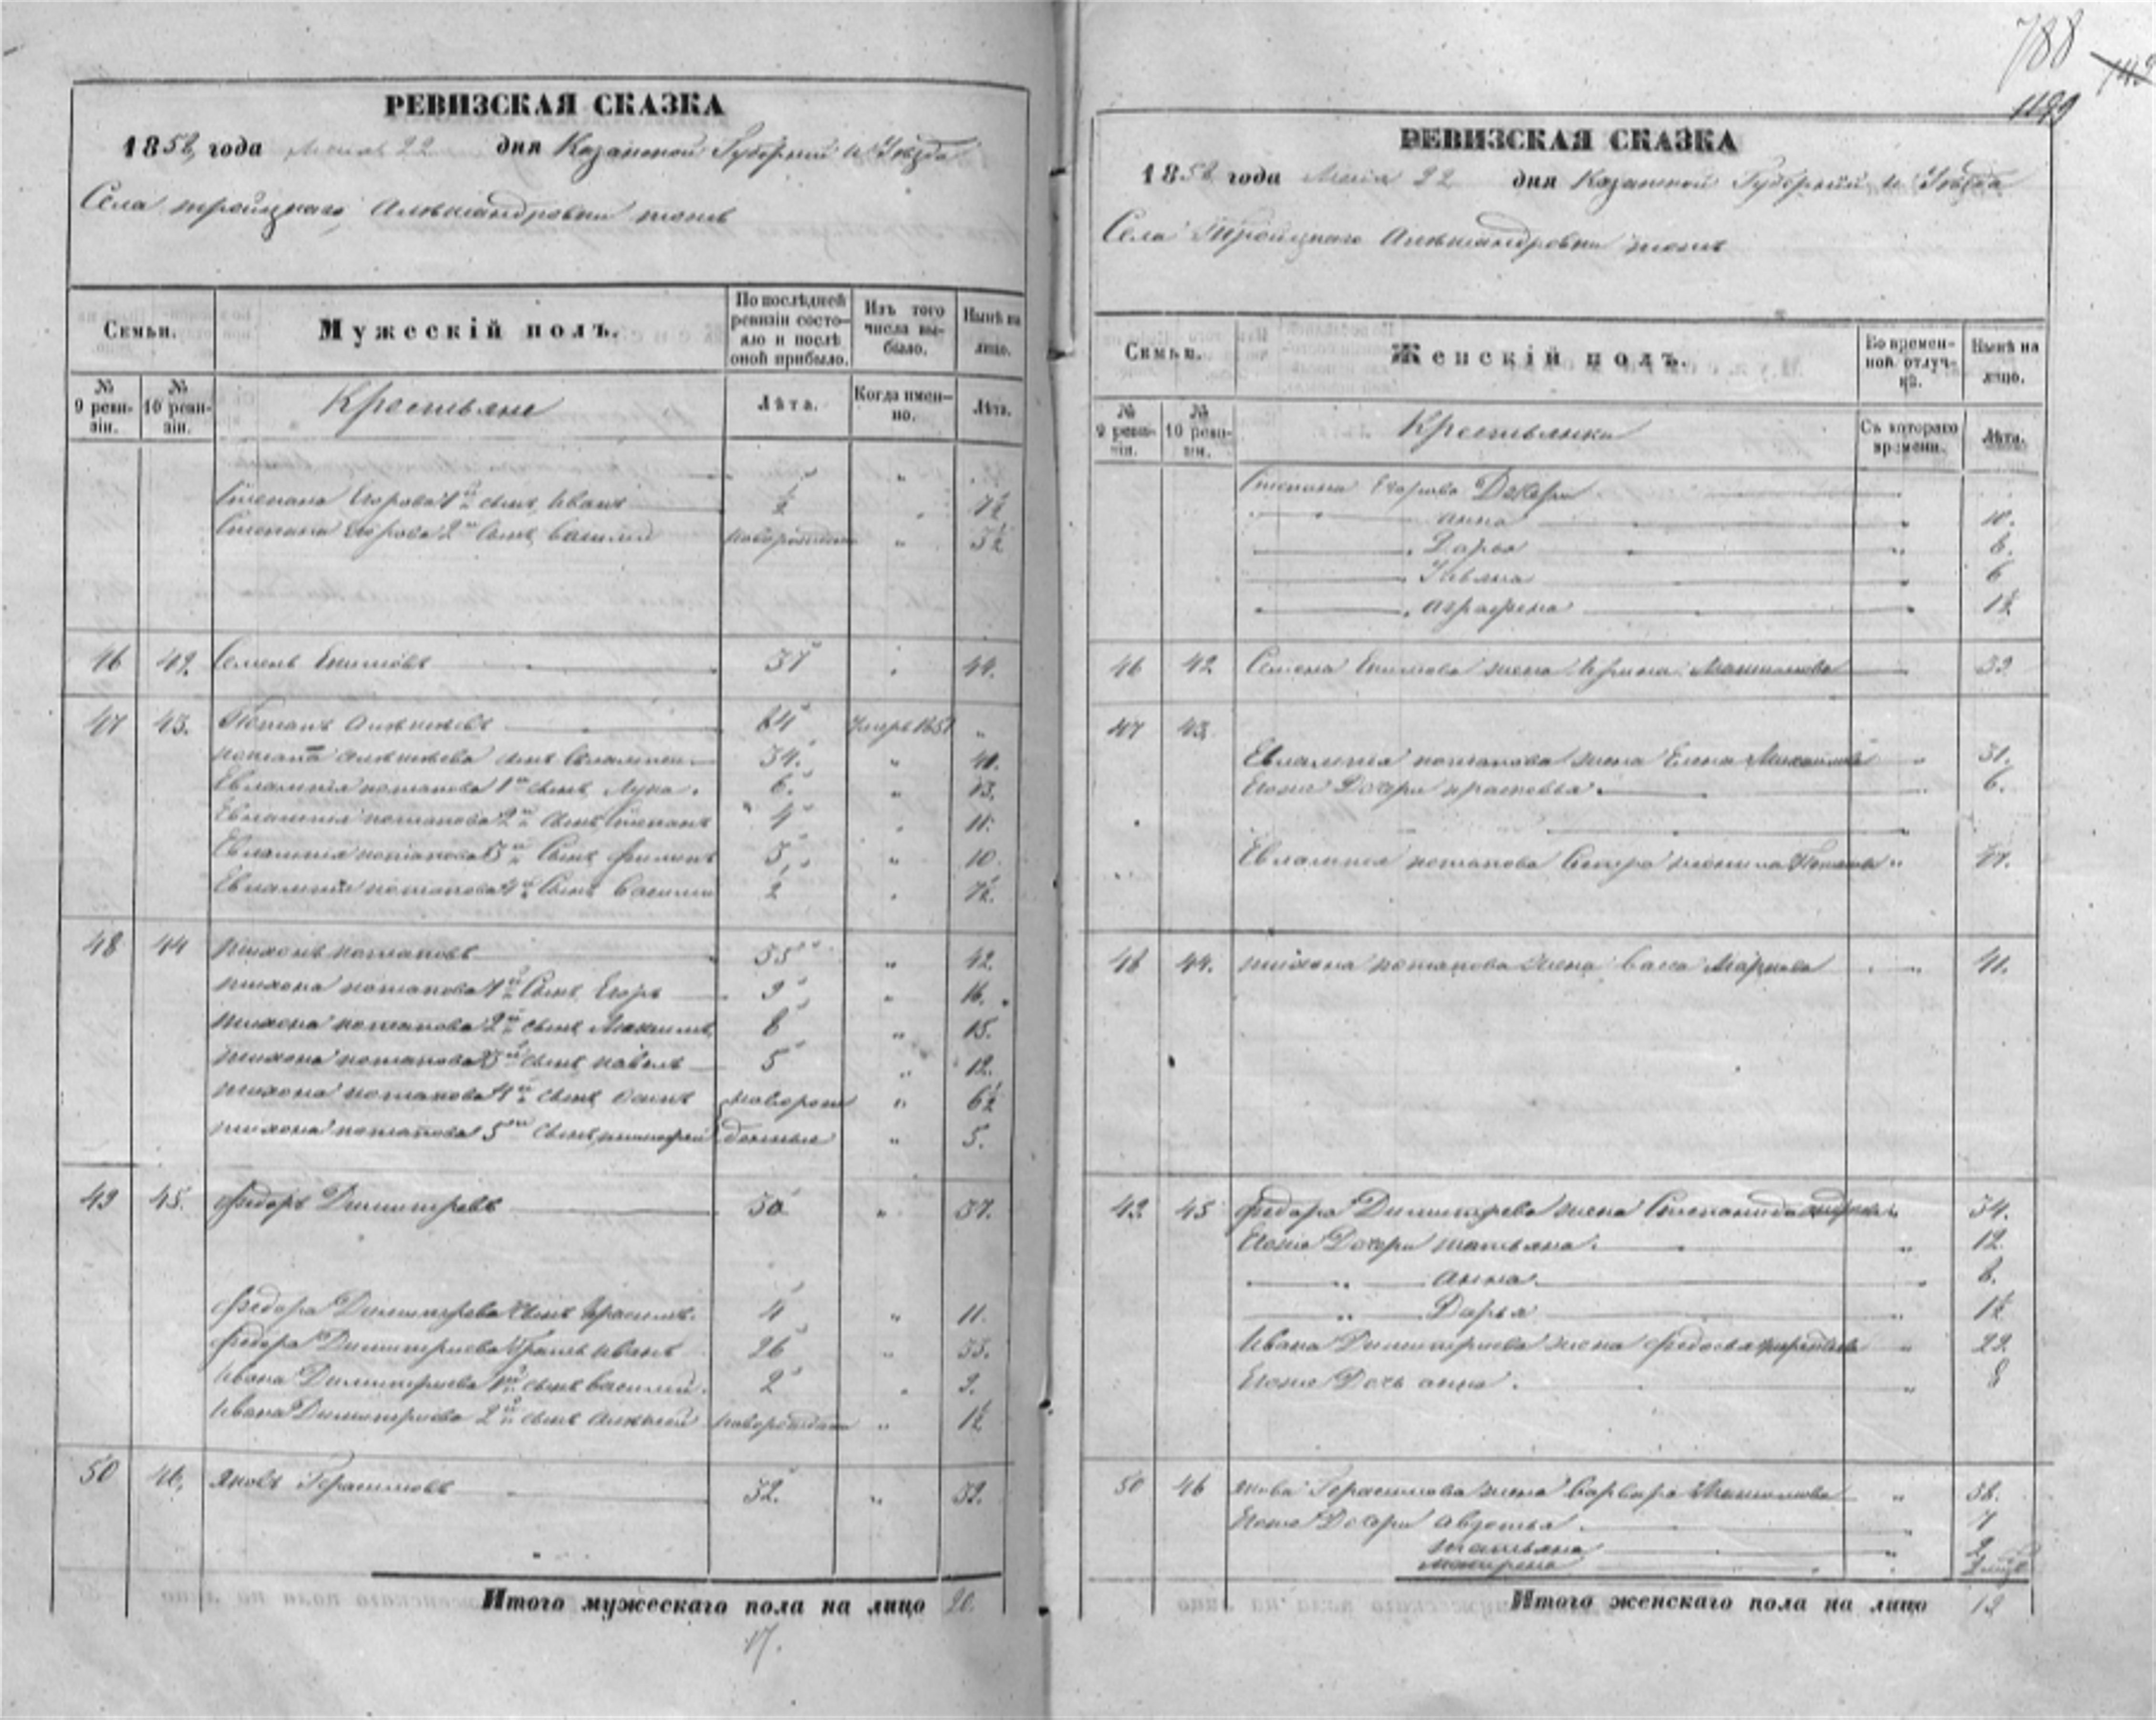 788
1199
РЕВИЗСКАЯ СКАЗКА
1858 года Маія 22 дня Казанской Губерніи и Уѣзда
Села Троицкаго, Александровки тожъ
Семьи.
Мужескій полъ.
По послѣдней ревизіи состояло и послѣ оной прибыло.
Изъ того числа выбыло.
Нынѣ на лицо.
№ 9 ревизіи.
№ 10 ревизіи.
Крестьяне
Лѣта.
Когда именно.
Лѣта.
Степана Егорова 1й сынъ Иванъ ½ " 7½
Степана Егорова 2й сынъ Василий новорожден " 3½
46 42. Семенъ 37 " 44.
47 43. Потапъ Алексѣевъ 64 Умеръ 1851 "
Потапа Алексѣева сынъ Евлампий 34. " 41.
Евлампія Потапова 1й сынъ Лука. 6. " 13.
Евлампія Потапова 2й сынъ Степанъ 4 " 11.
Евлампія Потапова 3й сынъ Филипъ 3 " 10.
Евлампія Потапова 4й сынъ Василий " 7½.
48 44 Тихонъ Потаповъ 35 " 42.
Тихона Потапова 1й сынъ Егоръ 9 " 16.
Тихона Потапова 2й сынъ Максимъ 8 " 15.
Тихона Потапова 3й сынъ Павелъ 5 " 12.
Тихона Потапова 4й сынъ Осипъ новорож " 6½
Тихона Потапова 5й сынъ Тимофей денные " 5.
49 45. Федоръ Димитревъ 30 " 37.
Федора Димитрева сынъ Герасимъ. 4 " 11.
Федора Димитриева Братъ Иванъ 26 " 33.
Ивана Димитриева 1й сынъ Василий. 2 " 9.
Ивана Димитриева 2й сынъ Алексѣй новорожден " 1½
50 46. Яковъ Герасимовъ 32. "
Итого мужескаго пола на лицо 20.
17.
РЕВИЗСКАЯ СКАЗКА
1858 года Маія 22 дня Казанской Губерніи и Уѣзда
Села Троицкаго Александровки тожъ
Семьи.
Женскій полъ.
Во временной отлучкѣ.
Нынѣ на лицо.
№ 9 ревизіи.
№ 10 ревизіи.
Крестьянки
Съ котораго времени.
Лѣта.
Степана Егорова Дочери
Анна " 10.
Дарья " 8.
" 6
Аграфена " 1½
46 42 Семена жена Ирина 39
47 43.
Евлампія Потапова жена Елена Михайлова " 31.
Егоже Дочери Прасковья. 6.
Евлампія Потапова Сестра "
48 44. Тихона Потапова жена Васса Маркова " 41.
49. 45 Федора Димитрева жена Степанида " 34.
Егоже Дочери Татьяна. " 12.
" Анна. " 8.
" Дарья " 1½
Ивана Димитриева жена Федосья " 29
Егоже Дочь Анна. " 8
50 46 Якова Герасимова жена Варвара " 38.
Егоже Дочери Авдотья. " 7
Татьяна " 2
Матрена "
Итого женскаго пола на лицо